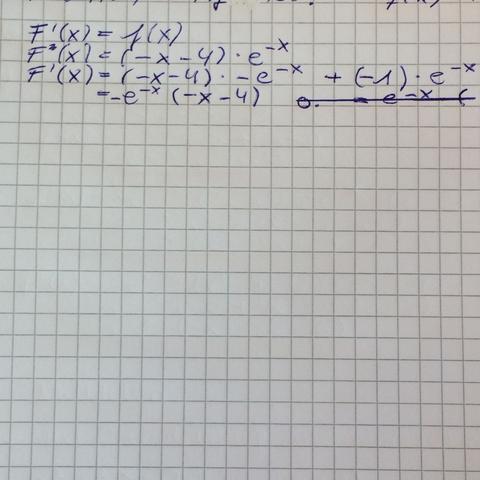 F'(x) = f(x)
F(x) = (-x-4) · e^-x
F'(x) = (-x-4) · -e^-x + (-1) · e^-x
= -e^-x (-x-4)